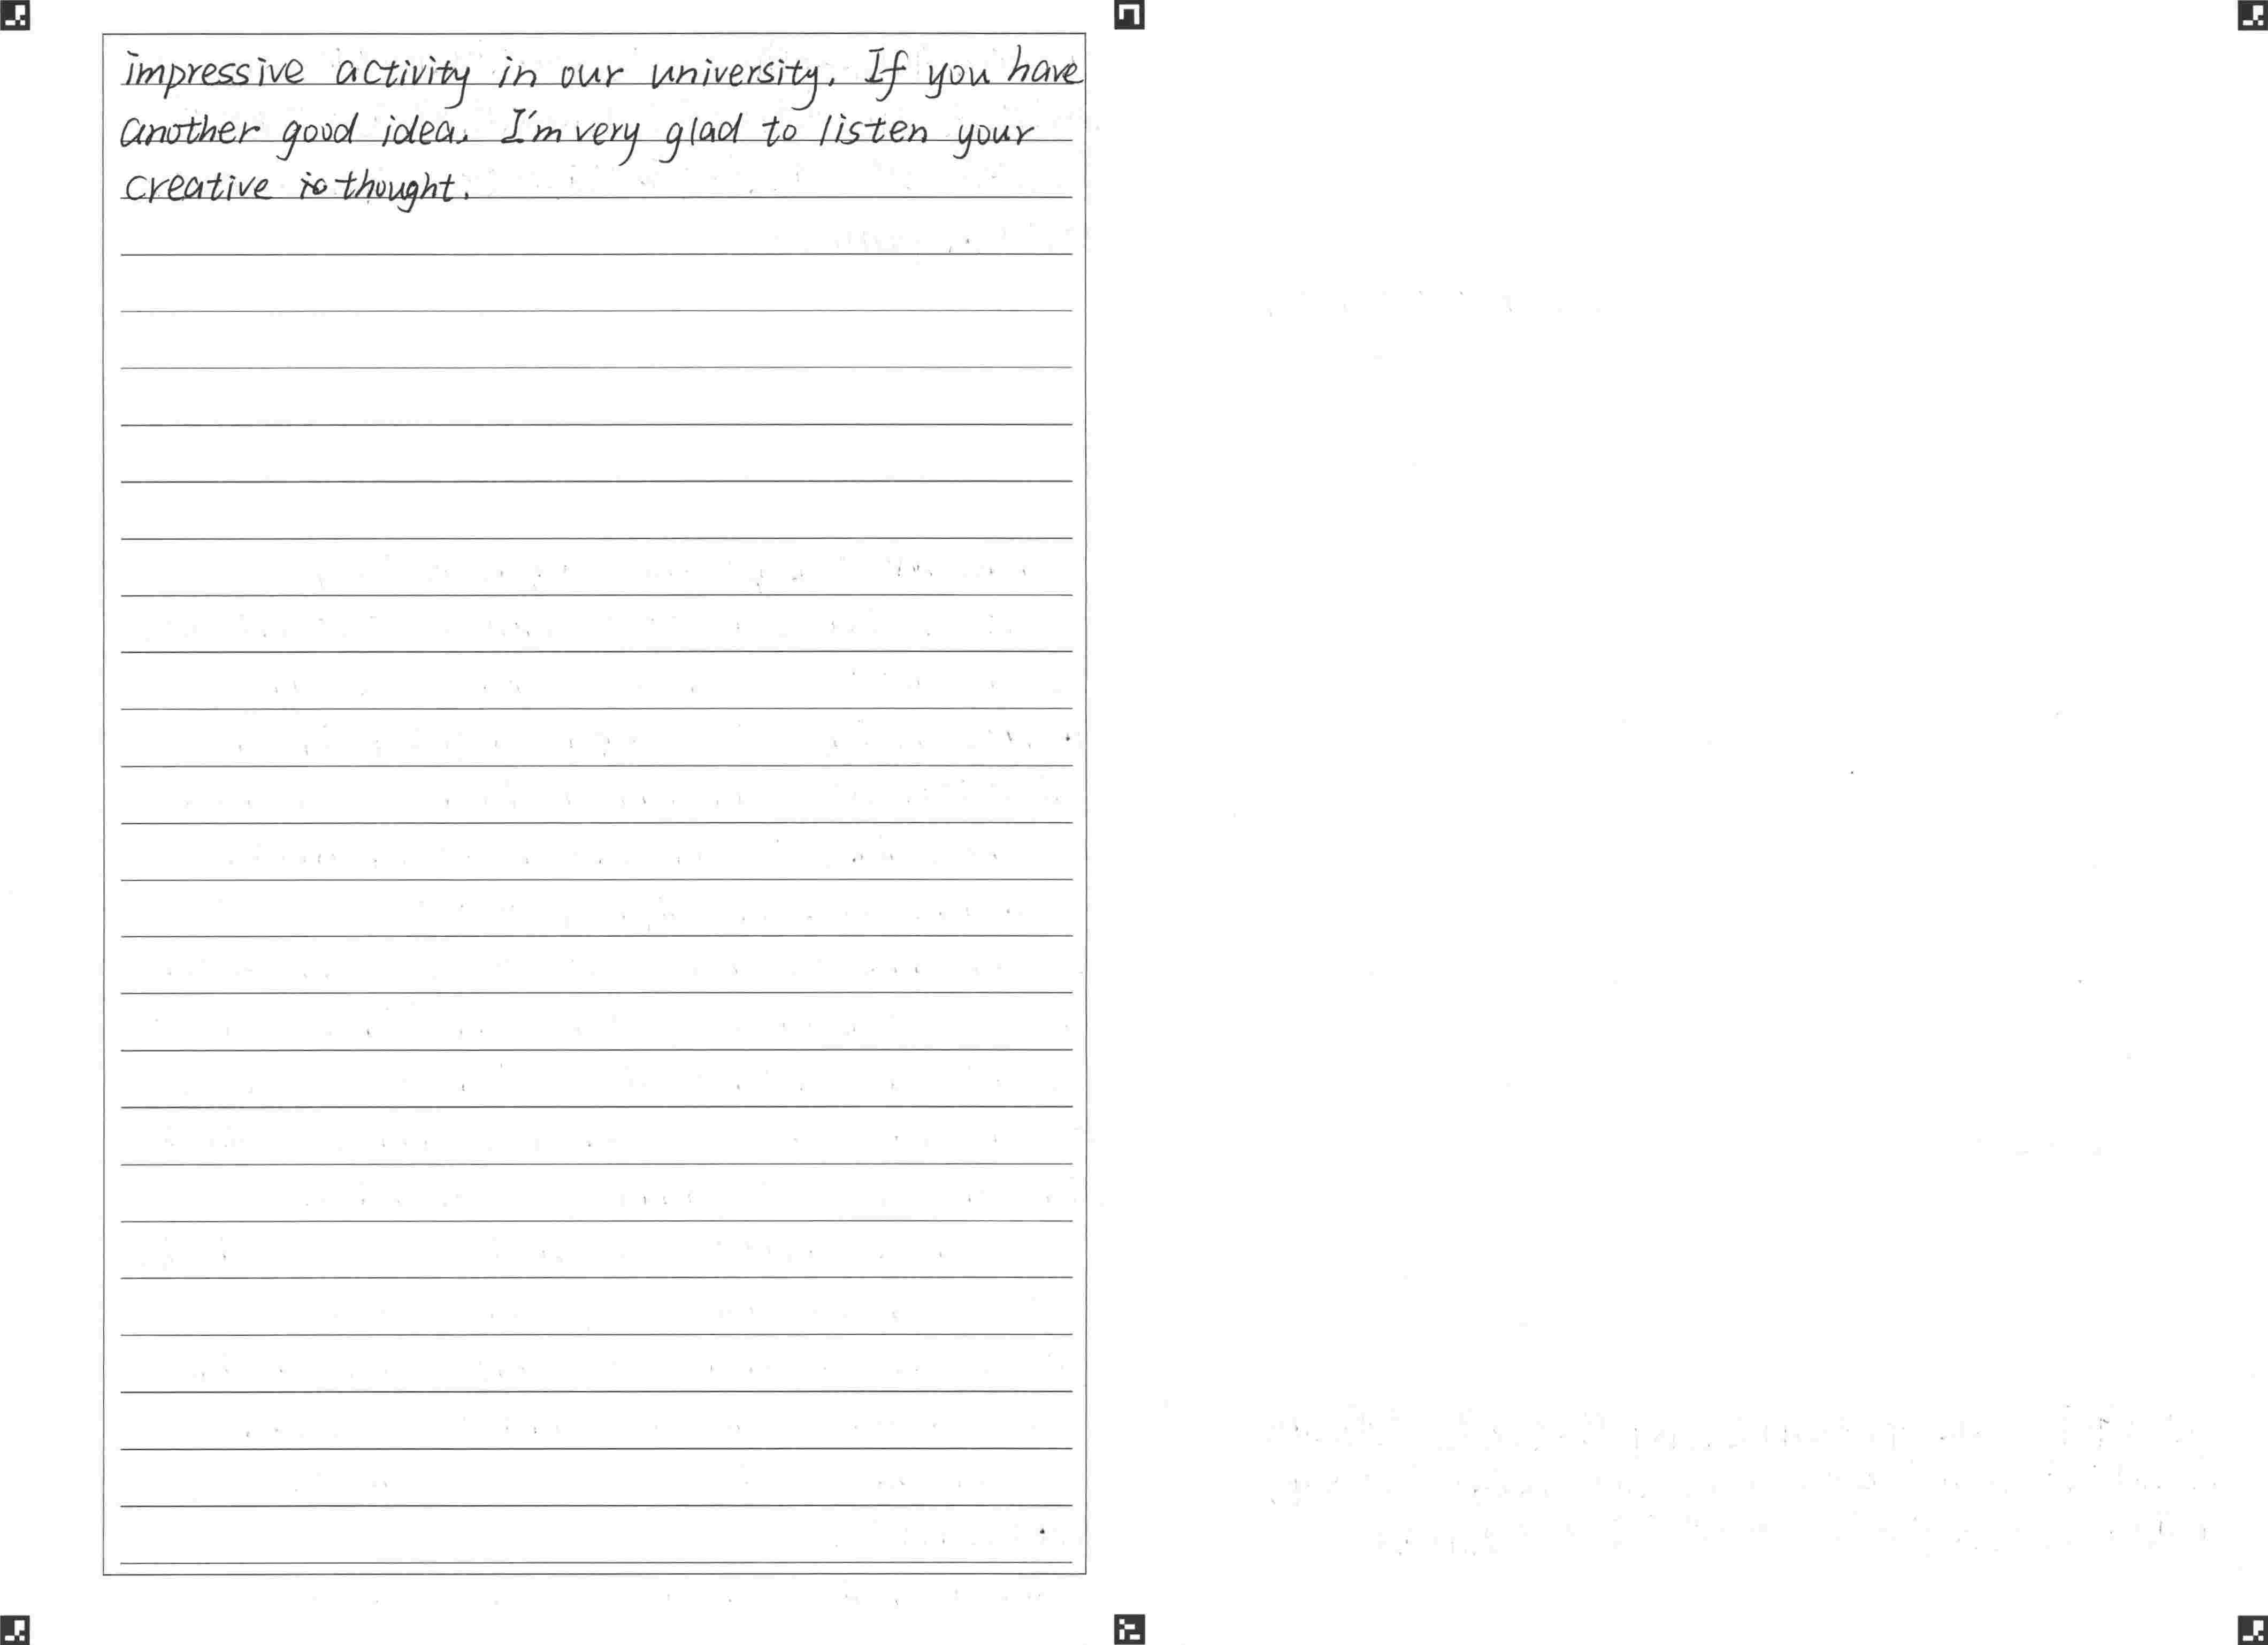 impressive activity in our university. If you have
another good idea. I'm very glad to listen your
creative thought.